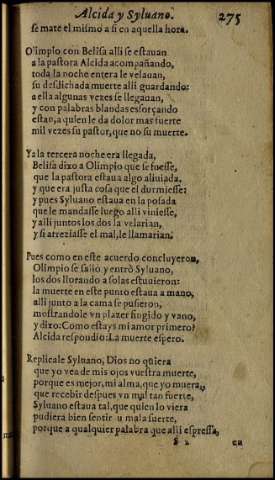 Alcida y Syluano. 275
se mate el mismo a si en aquella hora.
Olimpio con Belisa alli se estauan
a la pastora Alcida acompañando,
toda la noche entera le velauan,
su desdichada muerte alli guardando:
a ella algunas vezes se llegauan,
y con palabras blandas esforçando
estan, a quien le da dolor mas fuerte
mil vezes su pastor, que no su muerte.
Ya la tercera noche era llegada,
Belisa dixo a Olimpio que se fuesse,
que la pastora estaua algo aliuiada,
y que era justa cosa que el durmiesse:
y pues Syluano estaua en la posada
que le mandasse luego alli viniesse,
y alli juntos los dos la velarian,
y si arreziasse el mal, le llamarian.
Pues como en este acuerdo concluyeron,
Olimpio se salio y entrò Syluano,
los dos llorando a solas estuuieron:
la muerte en este punto estaua a mano,
alli junto a la cama se pusieron,
mostrandole vn plazer fingido y vano,
y dixo: Como estays mi amor primero?
Alcida respondio: La muerte espero.
Replicale Syluano, Dios no quiera
que yo vea de mis ojos vuestra muerte,
porque es mejor, mi alma, que yo muera,
que recebir despues vn mal tan fuerte,
Syluano estaua tal, que quien lo viera
pudiera bien sentir su mala suerte,
porque a qualquier palabra que alli espressa,
en